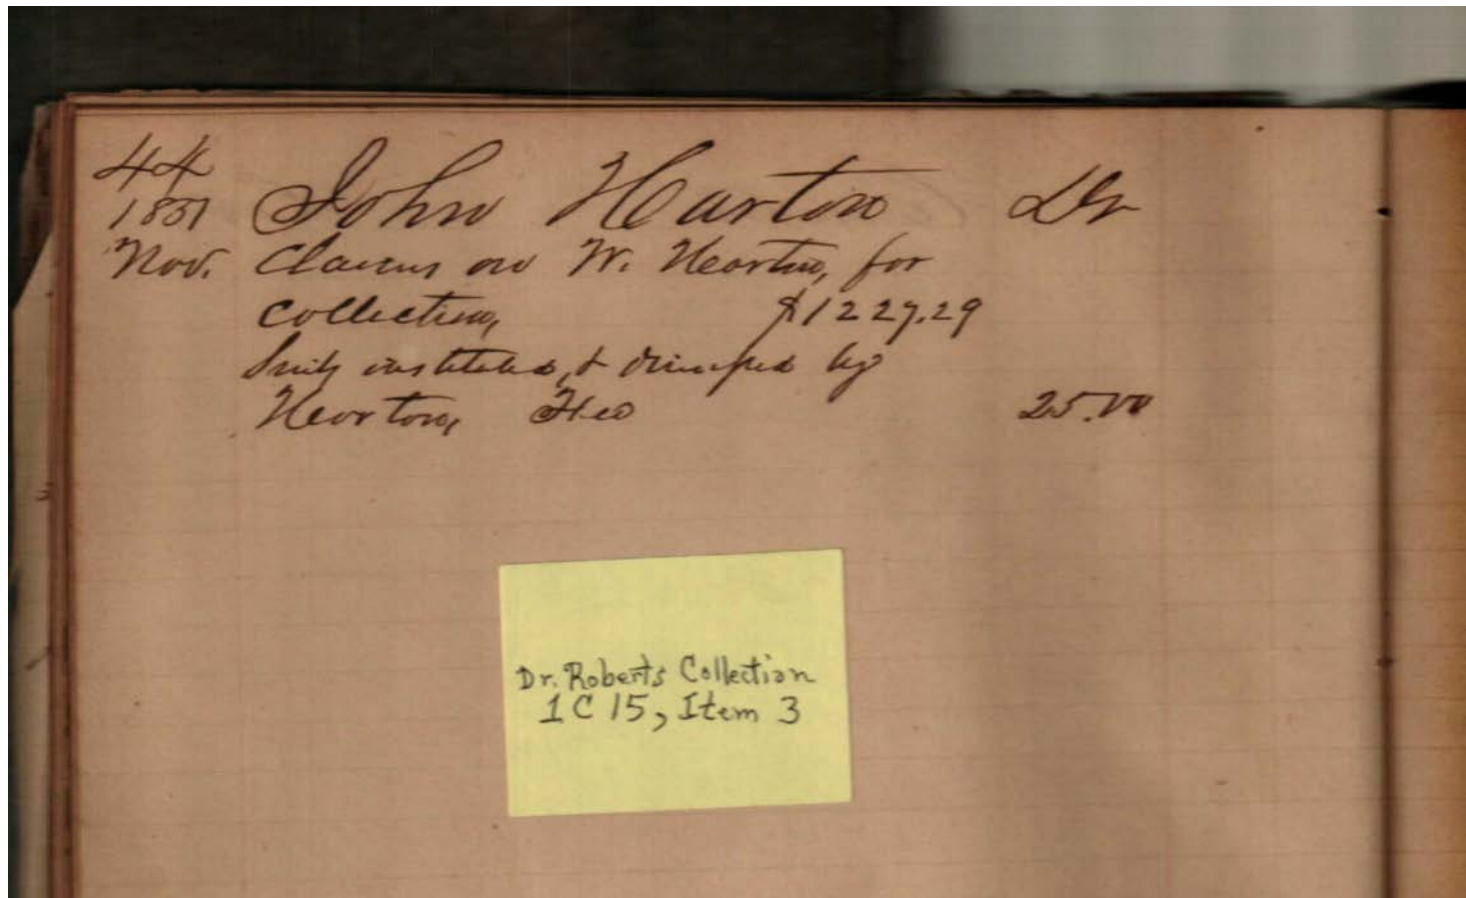 44
1851 John Harton Dr
Nov. Claims on W. Heartin, for
collection, $1227.29
Suits instituted, & dismissed by
Horton, Fee 25.00
Dr. Roberts Collection
1 C 15, Item 3